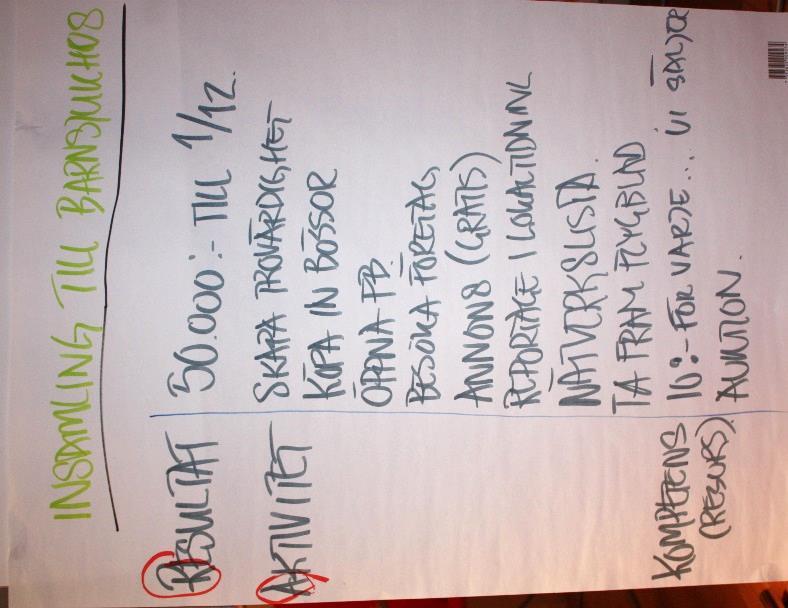 INSAMLING TILL BARNSJUKHUS
RESULTAT 50.000:- TILL 1/12.
AKTIVITET SKAPA TROVÄRDIGHET
KÖPA IN BÖSSOR
ÖPPNA FB.
BESÖKA FÖRETAG,
ANNONS (GRATIS)
REPORTAGE I LOKALTIDNING
NÄTVERKSLISTA.
TA FRAM FLYGBLAD
KOMPETENS 10:- FÖR VARJE... VI SÄLJER
(RESURS). AUKTION.